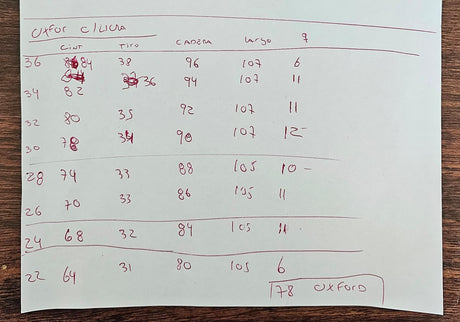 OXFOR C/LICRA
Cint Tiro CADERA Largo
36 84 38 96 107 6
34 82 36 94 107 11
32 80 35 92 107 11
30 78 34 90 107 12
28 74 33 88 105 10
26 70 33 86 105 11
24 68 32 84 105 11
22 64 31 80 105 6
78 OXFORD